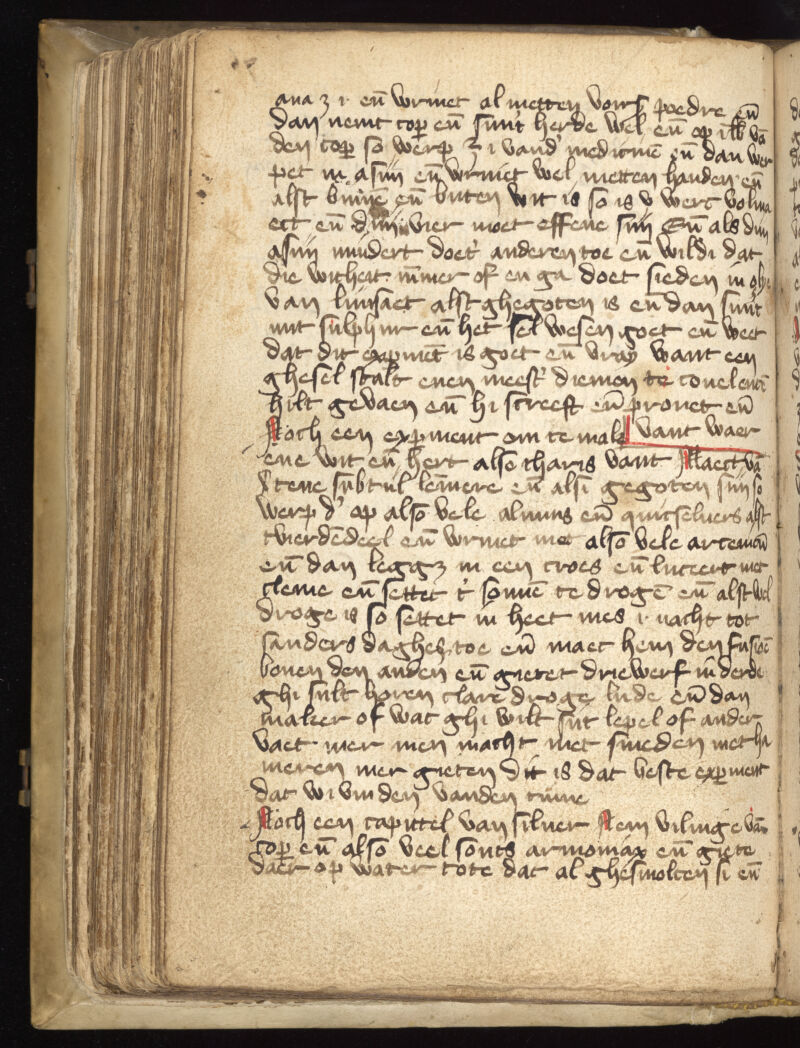 ana ʒ i· eñ wrinet al metten vors poedre eñ
dan nemt cop̃ eñ sunt herde wel eñ op i lb vā
den cop̃ so werp ʒ i vand' medicinē eñ dan wer
pet in asijn eñ wrinet wel metten handen eñ
alst binnē eñ buten wit is so is v werc volma
ect eñ dijn vier moet effene sijn Eñ als dijn
asijn mindert doet' anderen toe eñ wildi dat
die witheit nimer of en ga doet sieden in olye
van lijnsaet alst ghegoten is en dan sunt
mit sulphur eñ het sel wesen goet eñ weet
dat dit expiment is goet eñ vray want een
ghesel stalt enen meest' diemen te
hilt gevaen eñ hi screeft eñ provet eñ
Noch een expiment om te maken want waer
ene wit eñ hert also tharis vant Maect vā
tene subtijl lemere eñ alsi gegoten sijn so
werp d' op also vele aluuns eñ quicseluers alst
tvierdēdeel eñ wrinet met also vele
eñ dan leggʒ in een croes eñ luteert met
cleme eñ settet t' sonnē te drogē eñ alst wel
droge is so settet in heet mes i· nacht tot
sanders daghes toe eñ maect hem den fusioē
boven den anderen eñ gietet driewerf in derde
ghi sult horen clare droge lude eñ dan
maker of wat ghi wilt sijt lepel of ander
vaet mer men macht niet smeden met ha
meren mer gieten dit is dat beste expiment
dat wi vinden vanden tinne
Noch een capittel van silver Nem vilinge van
cop̃ eñ also veel souts armoniax eñ giete
daer op water tote dat al ghesmolten si eñ